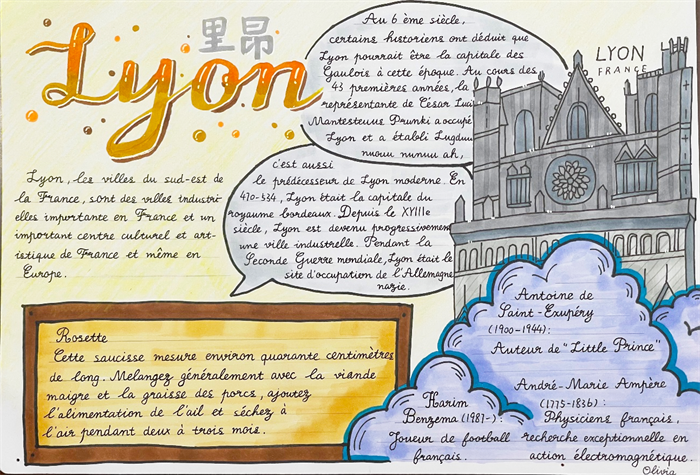 Lyon
里昂
Au 6 ème siècle,
certains historiens ont déduit que
Lyon pourrait être la capitale des
Gaulois à cette époque. Au cours des
43 premières années, la
représentante de César Luai
Mantesteuus Prunki a occupé
Lyon et a établi Lugduu
nuouu nunuu ah,
LYON
FRANCE
c'est aussi
le prédécesseur de Lyon moderne. En
470-534, Lyon était la capitale du
royaume bordeaux. Depuis le XVIIIe
siècle, Lyon est devenu progressivement
une ville industrielle. Pendant la
Seconde Guerre mendiale, Lyon était le
site d'occupation de l'Allemagne
nazie.
Lyon, les villes du sud-est de
la France, sont des villes industri-
elles importante en France et un
important centre culturel et art-
istique de France et même en
Europe.
Rosette
Cette saucisse mesure environ quarante centimètres
de long. Melangez généralement avec la viande
maigre et la graisse des porcs, ajoutez
l'alimentation de l'ail et séchez à
l'air pendant deux à trois mois.
Antoine de
Saint-Exupéry
(1900-1944):
Auteur de "Little Prince"
André-Marie Ampère
(1775-1836):
Physiciens français,
recherche exceptionnelle en
action électromagnétique.
Karim
Benzema (1987-):
Joueur de football
français.
Olivia